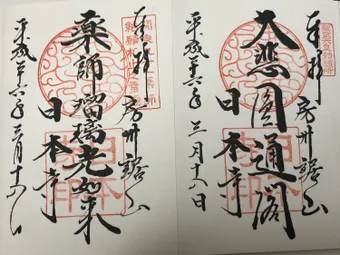 奉拝
房州鋸山
大悲圓通閣
日本寺
平成廿六年 三月十八日
奉拝
房州鋸山
藥師瑠璃光如来
日本寺
平成廿六年 三月十八日